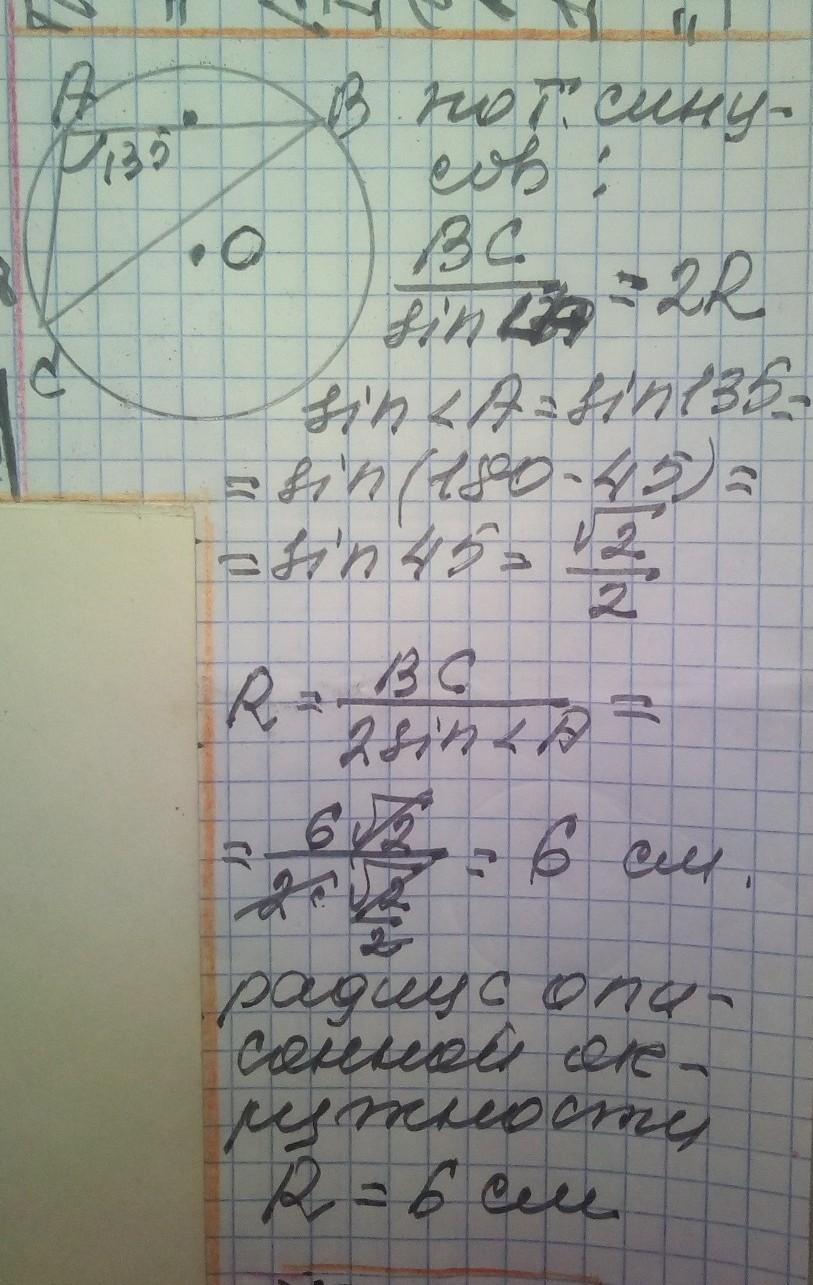 A
B
135
O
C
по т. сину-
сов :
BC / sin<A = 2R
sin<A = sin135 =
= sin(180-45) =
= sin 45 = √2 / 2
R = BC / 2sin<A =
= 6√2 / 2·√2/2 = 6 см.
радиус опи-
санной ок-
ружности
R = 6 см